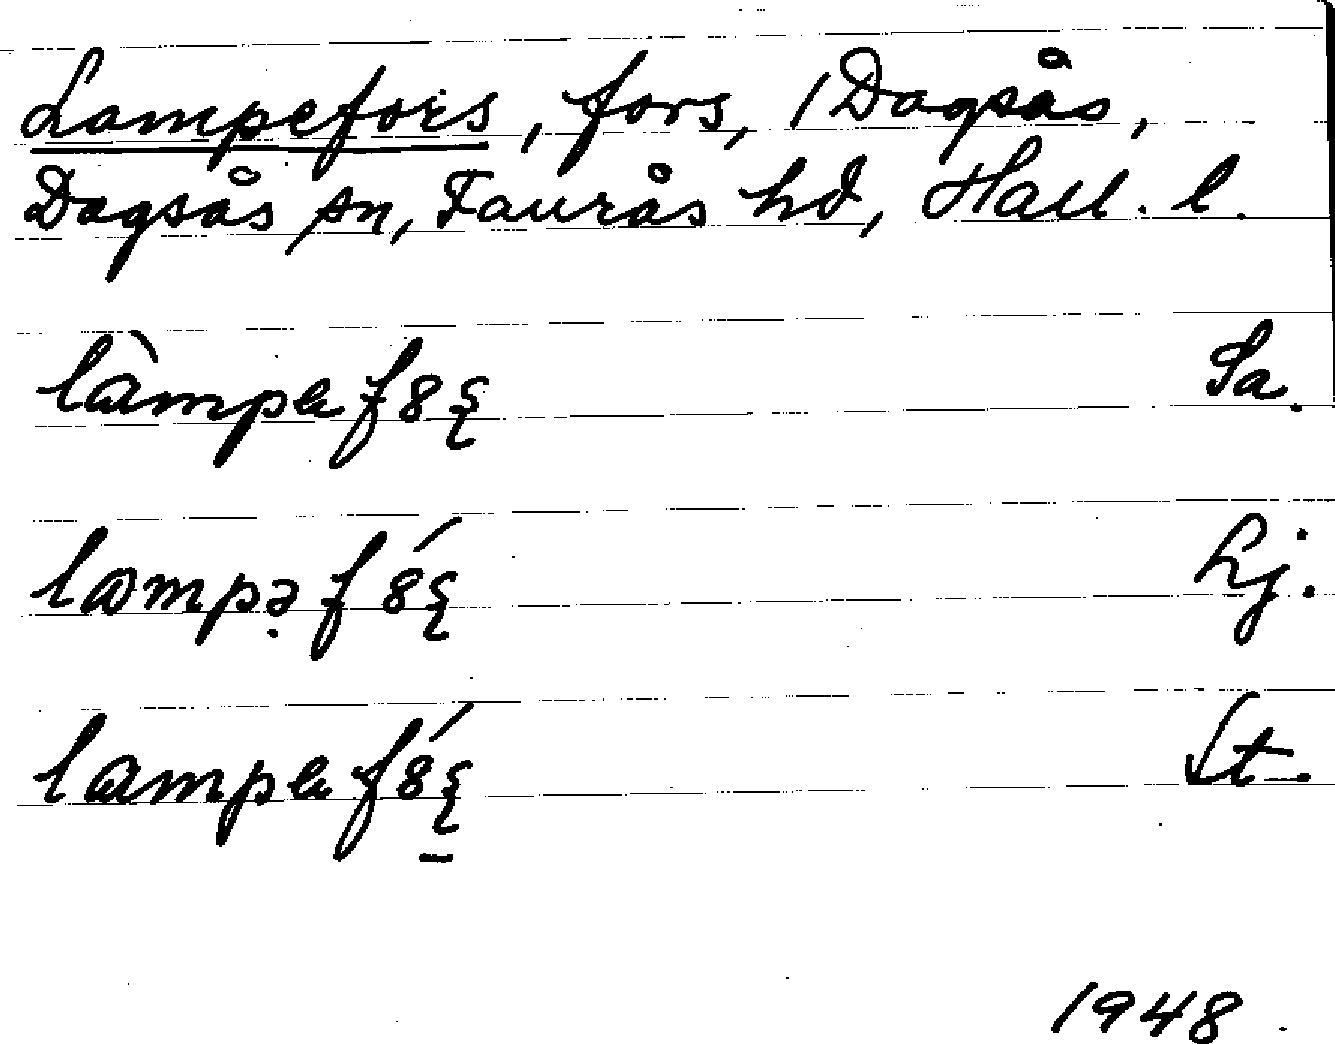 Lampefors, fors, / Dagsås,
Dagsås sn, Faurås hd, Hall. l.
làmpefȣʂ Sa.
lampə̣fȣ́ʂ Lj.
lampefȣ́ʂ St.
1948.